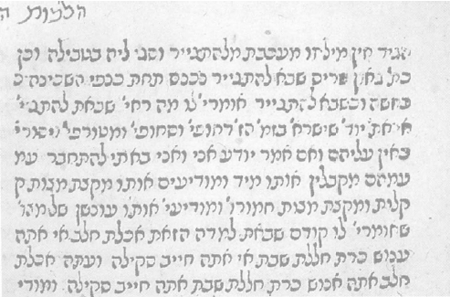 הלכות
אין מילתו מעכבת מלהתגייר וסגי ליה בטבילה וכן
שבא להתגייר נכנס תחת כנפי השכינה
וכשבא להתגייר אומרי' לו מה ראי' שבאת להתגיי'
שישר' בזמ' הז' דחופי' וסחופי' ומטורפי' ויסורי'
באין עליהם ואם אמר יודע אני ואני באתי להתחבר עמ
עמהם מקבלין אותו מיד ומודיעים אותו מקצת מצות ק
קלות ומקצת מצות חמורו' ומודיעי' אותו עונשן של מצו'
שאומרי' לו קודם שבאת למדה הזאת אכלת חלב אי אתה
ענוש כרת חללת שבת אי אתה חייב סקילה ועתה אכלת
חלב אתה ענוש כרת חללת שבת אתה חייב סקילה ומודי